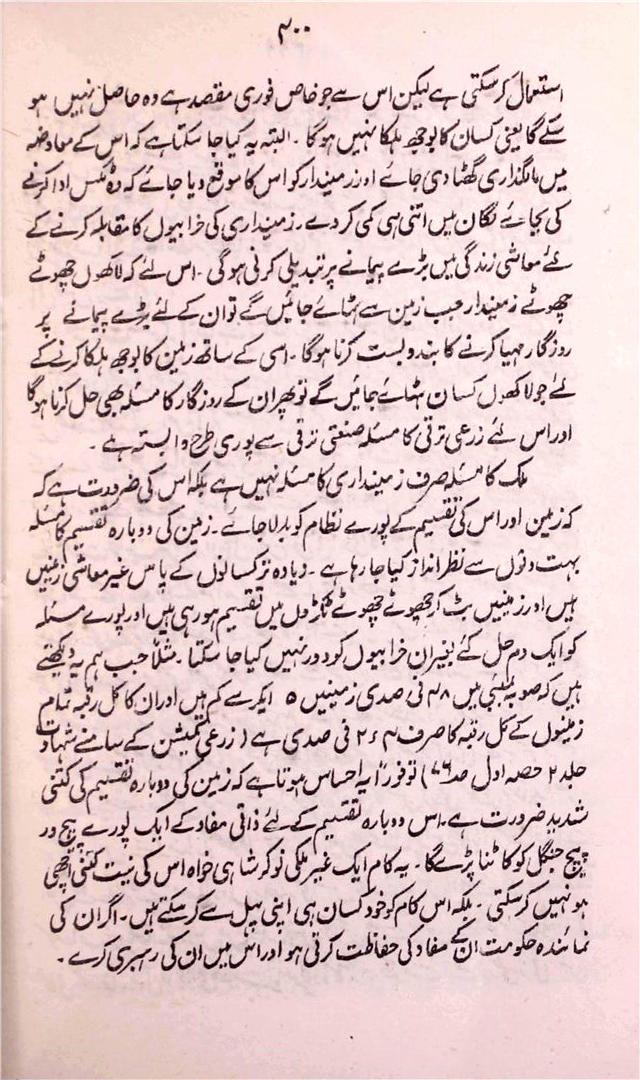 ۴۰۰
استعمال کر سکتی ہے لیکن اس سے جو خاص فوری مقصد ہے وہ حاصل نہیں ہو
سکے گا یعنی کسان کا بوجھ ہلکا نہیں ہوگا ۔ البتہ یہ کیا جا سکتا ہے کہ اس کے معاوضہ
میں مالگذاری گھٹا دی جائے اور زمیندار کو اس کا موقع دیا جائے کہ وہ ٹکس ادا کرنے
کی بجائے لگان میں اتنی ہی کمی کر دے ۔ زمینداری کی خرابیوں کا مقابلہ کرنے کے
لئے معاشی زندگی میں بڑے پیمانے پر تبدیلی کرنی ہوگی ۔ اس لئے کہ لاکھوں چھوٹے
چھوٹے زمیندار جب زمین سے ہٹائے جائیں گے تو ان کے لئے بڑے پیمانے پر
روزگار مہیا کرنے کا بندوبست کرنا ہوگا ۔ اسی کے ساتھ زمین کا بوجھ ہلکا کرنے کے
لئے جو لاکھوں کسان ہٹائے جائیں گے تو پھر ان کے روزگار کا مسئلہ بھی حل کرنا ہوگا
اور اس لئے زرعی ترقی کا مسئلہ صنعتی ترقی سے پوری طرح وابستہ ہے ۔
ملک کا مسئلہ صرف زمینداری کا مسئلہ نہیں ہے بلکہ اس کی ضرورت ہے کہ
کہ زمین اور اس کی تقسیم کے پورے نظام کو بدلا جائے ۔ زمین کی دوبارہ تقسیم کا مسئلہ
بہت دنوں سے نظر انداز کیا جا رہا ہے ۔ زیادہ تر کسانوں کے پاس غیر معاشی زمینیں
ہیں اور زمینیں بٹ کر چھوٹے چھوٹے ٹکڑوں میں تقسیم ہو رہی ہیں اور پورے مسئلہ
کو ایک دم حل کئے بغیر ان خرابیوں کو دور نہیں کیا جا سکتا ۔ مثلاً جب ہم یہ دیکھتے
ہیں کہ صوبہ بمبئی میں ۴۸ فی صدی زمینیں ۵ ایکڑ سے کم ہیں اور ان کا کل رقبہ تمام
زمینوں کے کل رقبہ کا صرف ۲۶۴ فی صدی ہے (زرعی کمیشن کے سامنے شہادت
جلد ۲ حصہ اول صـ۷۶) تو فوراً یہ احساس ہوتا ہے کہ زمین کی دوبارہ تقسیم کی کتنی
شدید ضرورت ہے ۔ اس دوبارہ تقسیم کے لئے ذاتی مفاد کے ایک پورے پیچ در
پیچ جنگل کو کاٹنا پڑے گا ۔ یہ کام ایک غیر ملکی نوکر شاہی خواہ اس کی نیت کتنی اچھی
ہو نہیں کر سکتی ۔ بلکہ اس کام کو خود کسان ہی اپنی پہل سے کر سکتے ہیں ۔ اگر ان کی
نمائندہ حکومت ان کے مفاد کی حفاظت کرتی ہو اور اس میں ان کی رہبری کرے ۔